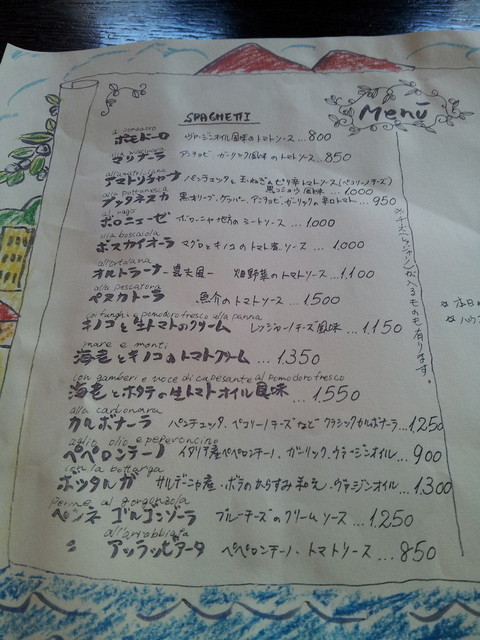 Menū
SPAGHETTI
al pomodoro
ポモドーロ ヴァージンオイル風味のトマトソース...800
マリナーラ アンチョビ ガーリック風味のトマトソース...850
all'amatriciana
アマトリチャーナ パンチェッタと玉ねぎのピリ辛トマトソース(ペコリーノチーズ)
黒コショウ風味...1.000
alla puttanesca
プッタネスカ 黒オリーヴ・ケッパー、アンチョビ、ガーリックの辛口トマト...950
al ragù
ボロニェーゼ ボローニャ地方のミートソース...1.000
alla boscaiola
ボスカイオーラ マグロとキノコのトマトソース...1.000
all'ortolana
オルトラーナ -農夫風- 畑野菜のトマトソース...1.100
alla pescatora
ペスカトーラ 魚介のトマトソース...1.500
coi funghi e pomodoro fresco alla panna
キノコと生トマトのクリーム レッジャーノチーズ風味...1.150
mare e monti
海老とキノコのトマトクリーム...1.350
con gamberi e noce di capesante al pomodoro fresco
海老とホタテの生トマトオイル風味...1.550
alla carbonara
カルボナーラ パンチェッタ、ペコリーノチーズなど クラシックカルボナーラ...1.250
aglio olio e peperoncino
ペペロンチーノ イタリア産ペペロンチーノ、ガーリック、ヴァージンオイル...900
con la bottarga
ボッタルガ サルデーニャ産・ボラのからすみ和え、ヴァージンオイル...1.300
penne al gorgonzola
ペンネ ゴルゴンゾーラ ブルーチーズのクリームソース...1.250
all'arrabbiata
〃 アッラビアータ ペペロンチーノ、トマトソース...850
が入るものも有ります。